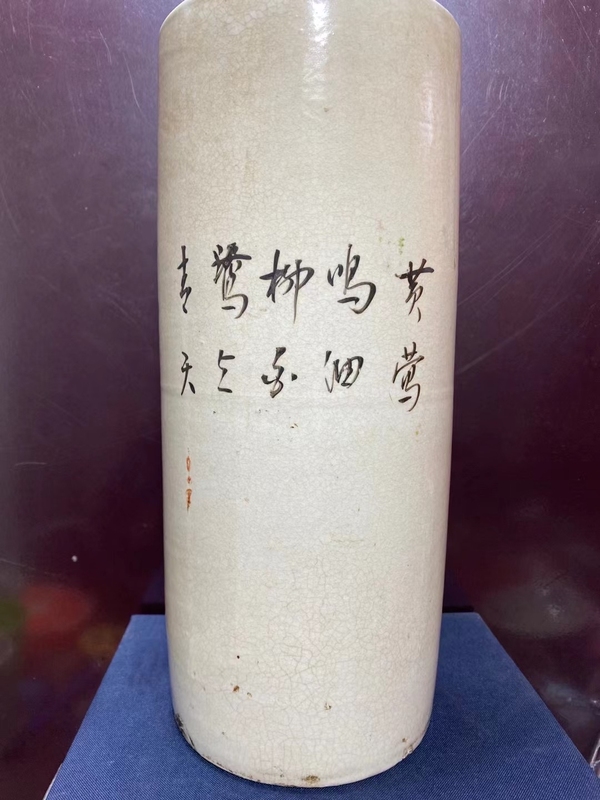 黄莺
鸣细
柳白
鹭上
青天